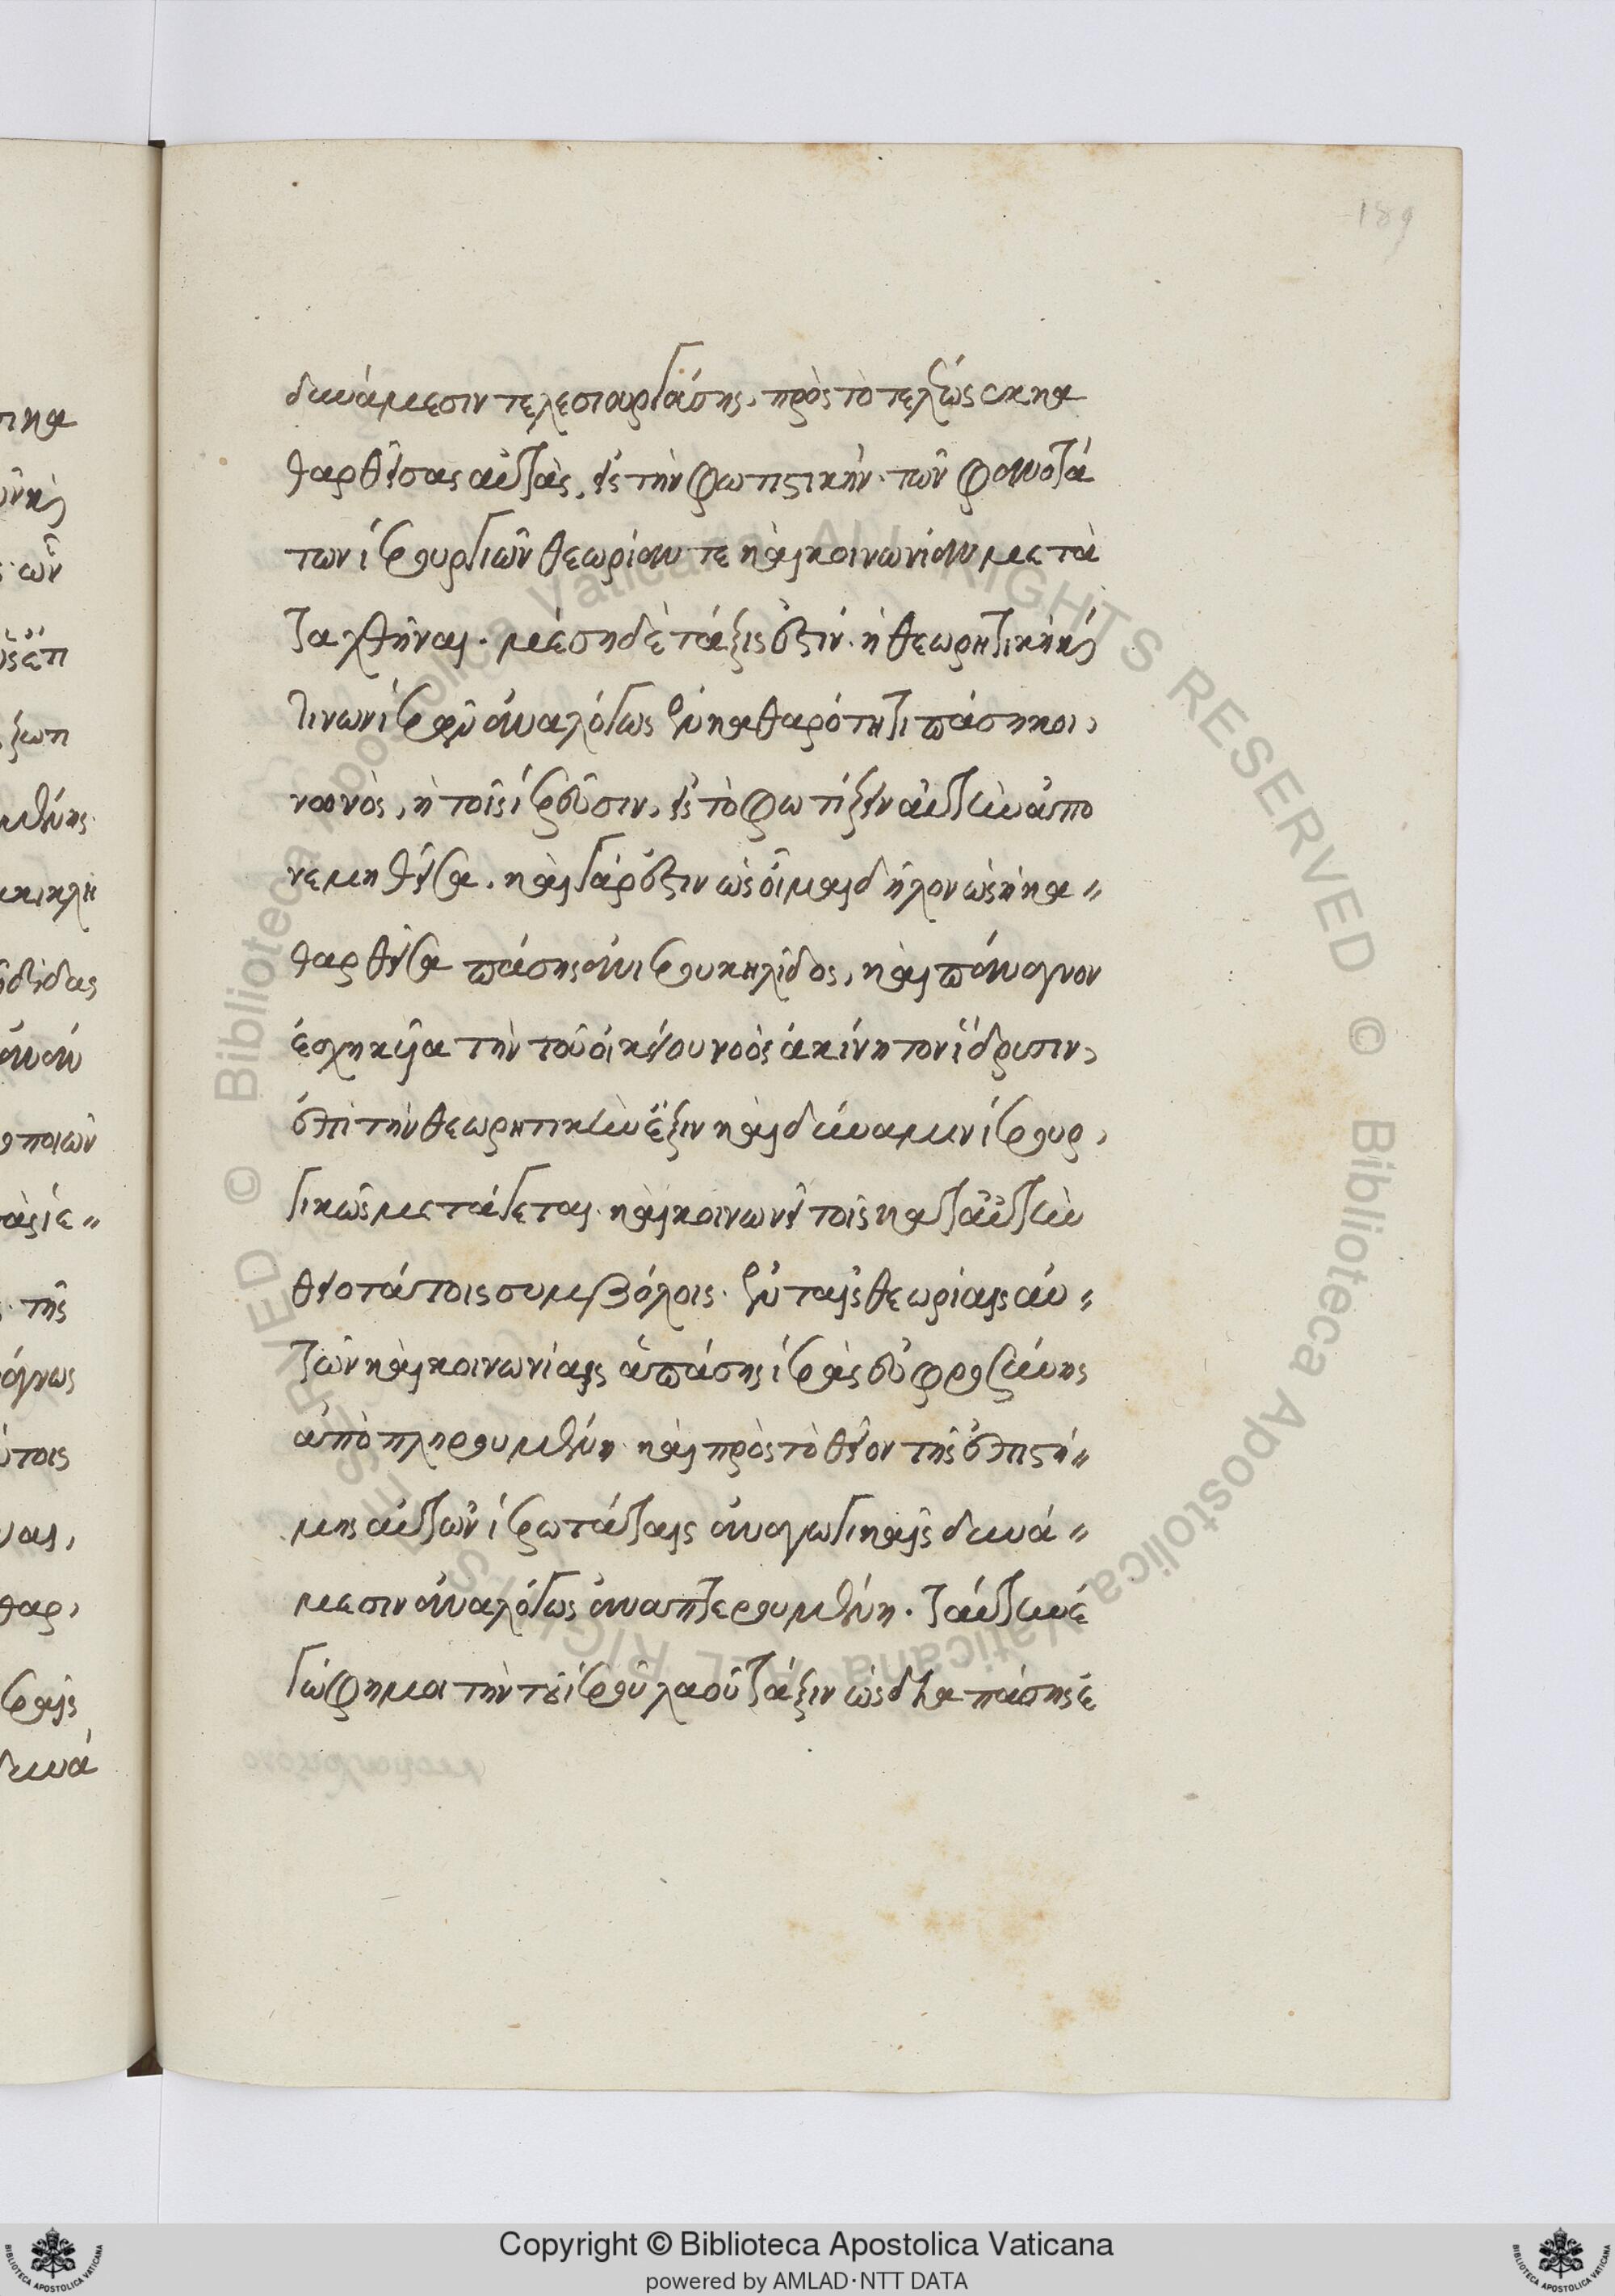 189
δυνάμεσιν τελεσιουργάσης, πρὸς τὸ τελείως ἐκκα
θαρθείσας αὐτὰς, εἰς τὴν φωτιστικὴν τῶν φανοτά
των ἱερουργιῶν θεωρίαν τε καὶ κοινωνίαν μετα
ταχθῆναι. μέση δὲ τάξις ἐστίν. ἡ θεωρητικὴ καί
τινων ἱερῶν ἀναλόγως ἐν καθαρότητι πάσῃ κοι,
νωνὸς, ἣ τοῖς ἱερεῦσιν, εἰς τὸ φωτίζειν αὐτὴν ἀπο
νεμηθεῖσα. καὶ γάρ ἐστιν ὡς οἶμαι δῆλον ὡς ἡ κα〃
θαρθεῖσα πάσης ἀνιέρου κηλῖδος, καὶ πάναγνον
ἐσχηκυῖα τὴν τοῦ οἰκείου νοὸς ἀκίνητον ἵδρυσιν,
ἐπὶ τὴν θεωρητικὴν ἕξιν καὶ δύναμιν ἱερουρ,
γικῶς μετάγεται. καὶ κοινωνεῖ τοῖς κατ' αὐτὴν
θειοτάτοις συμβόλοις. ἐν ταῖς θεωρίαις αὐ〃
τῶν καὶ κοινωνίαις ἁπάσης ἱερᾶς εὐφροσύνης
ἀποπληρουμένη. καὶ πρὸς τὸ θεῖον τῆς ἐπιστή〃
μης αὐτῶν ἱερωτάταις ἀναγωγικαῖς δυνά〃
μεσιν ἀναλόγως ἀναπτερουμένη. ταύτην ἐ
γώ φημι τὴν τοῦ ἱεροῦ λαοῦ τάξιν ὡς διὰ πάσης ἐ
Copyright © Biblioteca Apostolica Vaticana
powered by AMLAD·NTT DATA